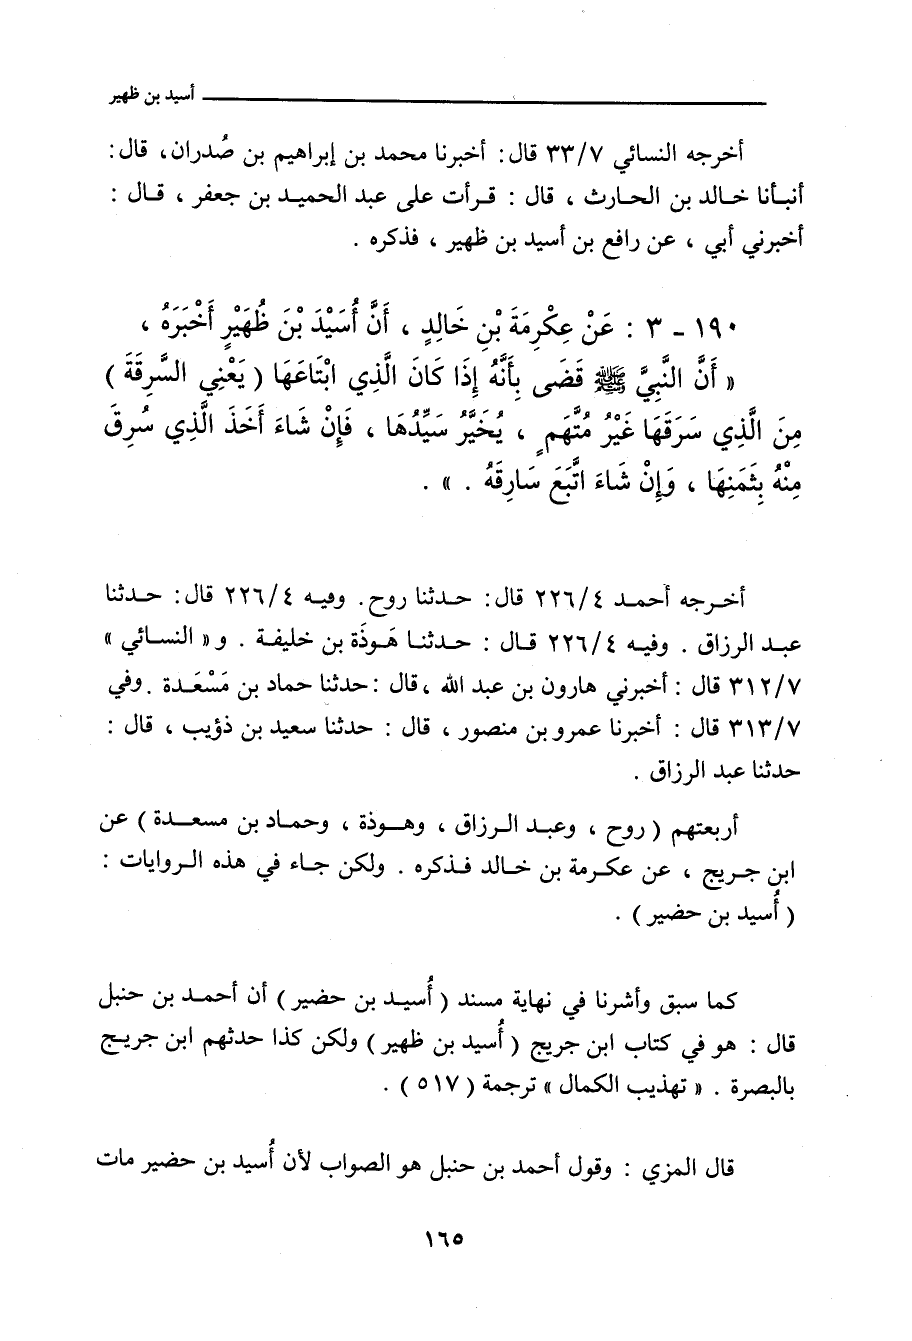 أسيد بن ظهير
أخرجه النسائي ٣٣/٧ قال: أخبرنا محمد بن إبراهيم بن صُدران، قال:
أنبأنا خالد بن الحارث ، قال : قرأت على عبد الحميد بن جعفر ، قال :
أخبرني أبي ، عن رافع بن أسيد بن ظهير ، فذكره .
١٩٠ - ٣ : عَنْ عِكْرِمَةَ بْنِ خَالِدٍ ، أَنَّ أُسَيْدَ بْنَ ظُهَيْرٍ أَخْبَرَهُ ،
« أَنَّ النَّبِيَّ ﷺ قَضَى بِأَنَّهُ إِذَا كَانَ الَّذِي ابْتَاعَهَا ( يَعْنِي السَّرِقَةَ )
مِنَ الَّذِي سَرَقَهَا غَيْرُ مُتَّهَمٍ ، يُخَيَّرُ سَيِّدُهَا ، فَإِنْ شَاءَ أَخَذَ الَّذِي سُرِقَ
مِنْهُ بِثَمَنِهَا ، وَإِنْ شَاءَ اتَّبَعَ سَارِقَهُ . » .
أخرجه أحمد ٢٢٦/٤ قال: حدثنا روح. وفيه ٢٢٦/٤ قال: حدثنا
عبد الرزاق . وفيه ٢٢٦/٤ قال : حدثنا هَوذَة بن خليفة . و« النسائي »
٣١٢/٧ قال : أخبرني هارون بن عبد الله ، قال : حدثنا حماد بن مَسْعَدة . وفي
٣١٣/٧ قال : أخبرنا عمرو بن منصور ، قال : حدثنا سعيد بن ذؤيب ، قال :
حدثنا عبد الرزاق .
أربعتهم ( روح ، وعبد الرزاق ، وهوذة ، وحماد بن مسعدة ) عن
ابن جريج ، عن عكرمة بن خالد فذكره . ولكن جاء في هذه الروايات :
( أُسيد بن حضير ) .
كما سبق وأشرنا في نهاية مسند ( أُسيد بن حضير ) أن أحمد بن حنبل
قال : هو في كتاب ابن جريج ( أُسيد بن ظهير ) ولكن كذا حدثهم ابن جريج
بالبصرة . « تهذيب الكمال » ترجمة ( ٥١٧ ) .
قال المزي : وقول أحمد بن حنبل هو الصواب لأن أُسيد بن حضير مات
١٦٥